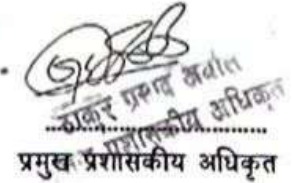 ठाकुर प्रसाद अर्याल
प्रशासकीय अधिकृत
प्रमुख प्रशासकीय अधिकृत